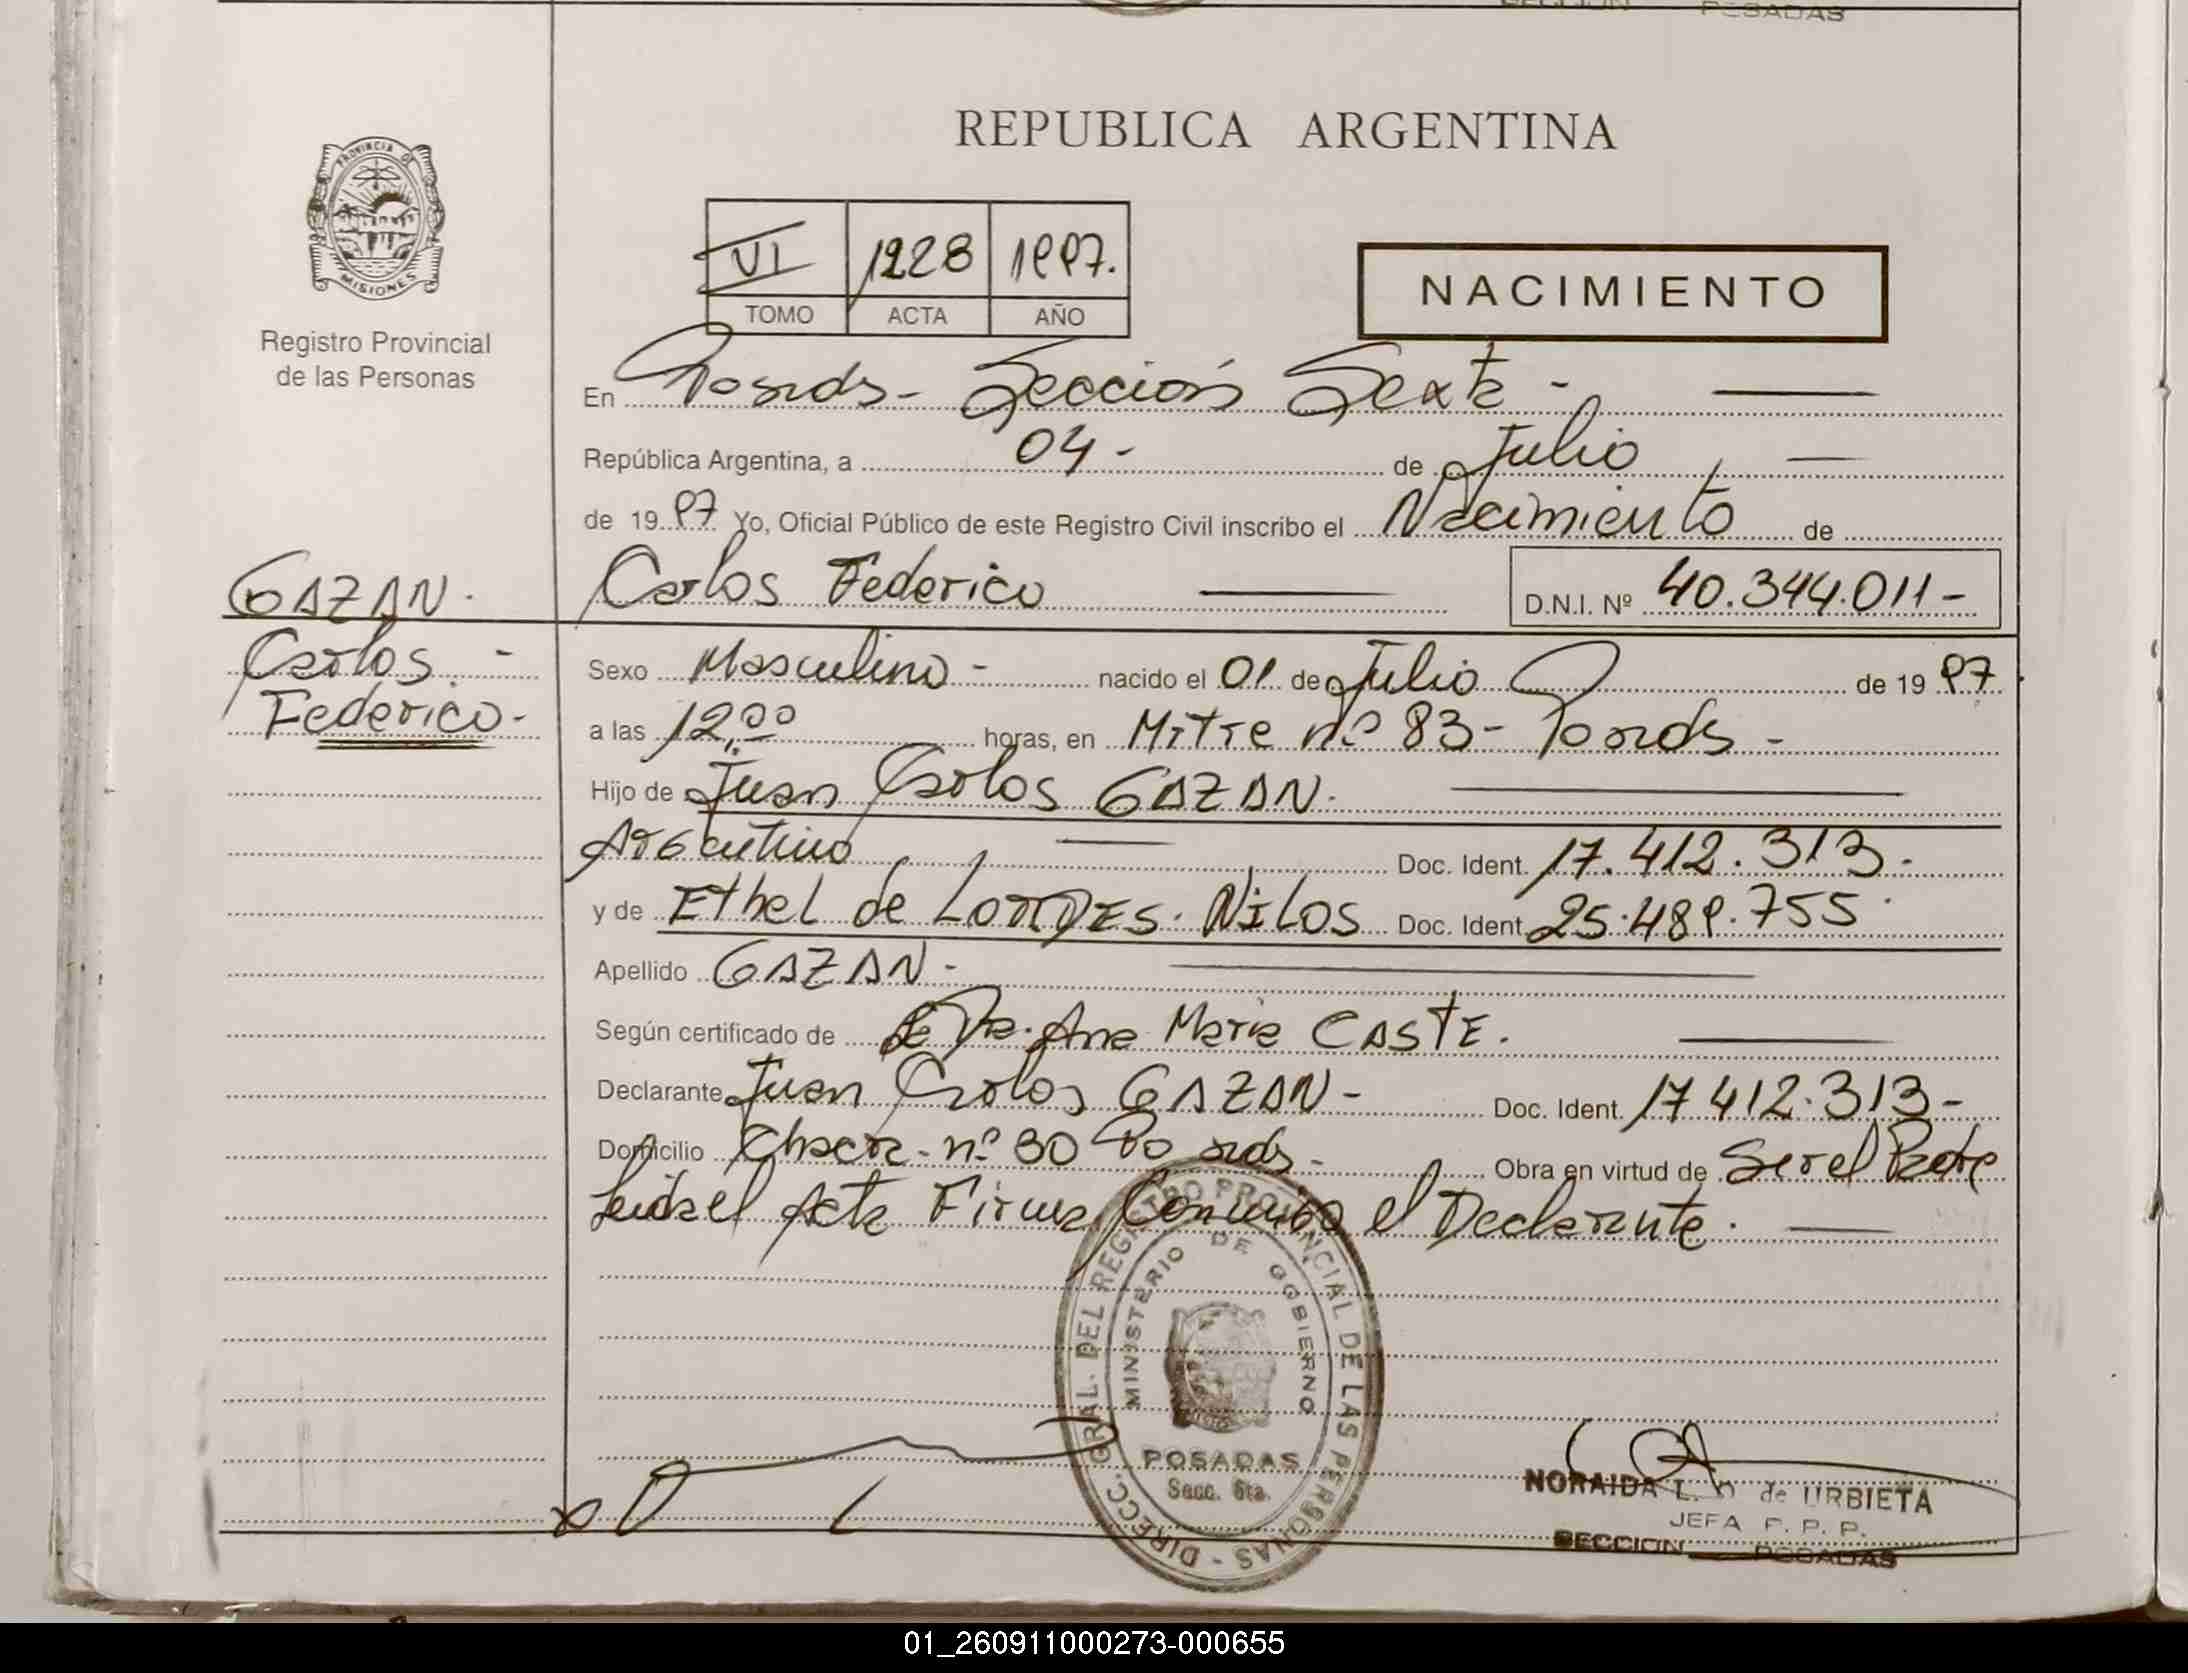 SECCION POSADAS
REPUBLICA ARGENTINA
PROVINCIA DE
MISIONES
Registro Provincial
de las Personas
VI 1228 1997.
TOMO ACTA AÑO
NACIMIENTO
En Posadas - Sección Sexta -
República Argentina, a 04 - de Julio
de 19 97 Yo, Oficial Público de este Registro Civil inscribo el Nacimiento de
Carlos Federico D.N.I. Nº 40.344.011-
GAZAN.
Carlos -
Federico -
Sexo Masculino - nacido el 01 de Julio de 19 97
a las 12,00 horas, en Mitre nº 83 - Posadas -
Hijo de Juan Carlos GAZAN.
Argentino Doc. Ident. 17.412.313.
y de Ethel de LOURDES. Doc. Ident. 25.489.755
Apellido GAZAN -
Según certificado de la Dra. Ana Maria CASTE.
Declarante Juan Carlos GAZAN - Doc. Ident. 17 412.313-
Domicilio Chacra - nº 30 Posadas - Obra en virtud de Ser el Padre
Leida el Acta Firma Conmigo el Declarante.
DIRECC. GRAL. DEL REGISTRO PROVINCIAL DE LAS PERSONAS -
MINISTERIO DE GOBIERNO
POSADAS
Secc. 6ta.
NORAIDA L. de URBIETA
JEFA
SECCION POSADAS
01_260911000273-000655